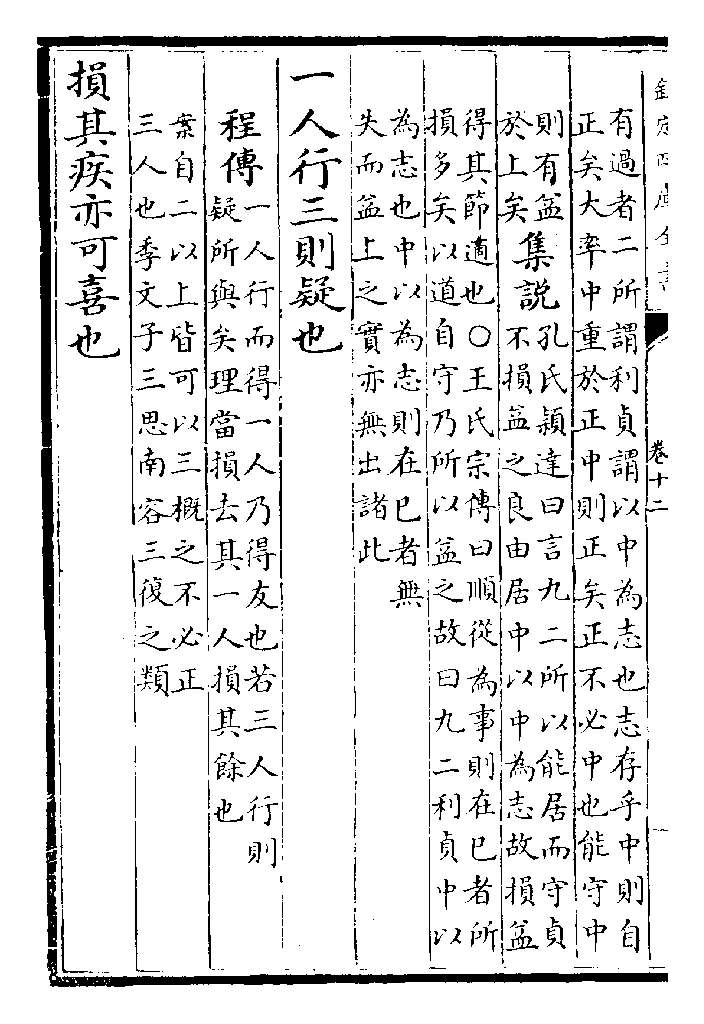 欽定四庫全書
卷十二
有過者二所謂利貞謂以中為志也志存乎中則自
正矣大率中重於正中則正矣正不必中也能守中
則有益
於上矣
集說
孔氏穎達曰言九二所以能居而守貞
不損益之良由居中以中為志故損益
得其節適也○王氏宗傳曰順從為事則在已者所
損多矣以道自守乃所以益之故曰九二利貞中以
為志也中以為志則在已者無
失而益上之實亦無出諸此
一人行三則疑也
程傳
一人行而得一人乃得友也若三人行則
疑所與矣理當損去其一人損其餘也
案自二以上皆可以三概之不必正
三人也季文子三思南容三復之類
損其疾亦可喜也